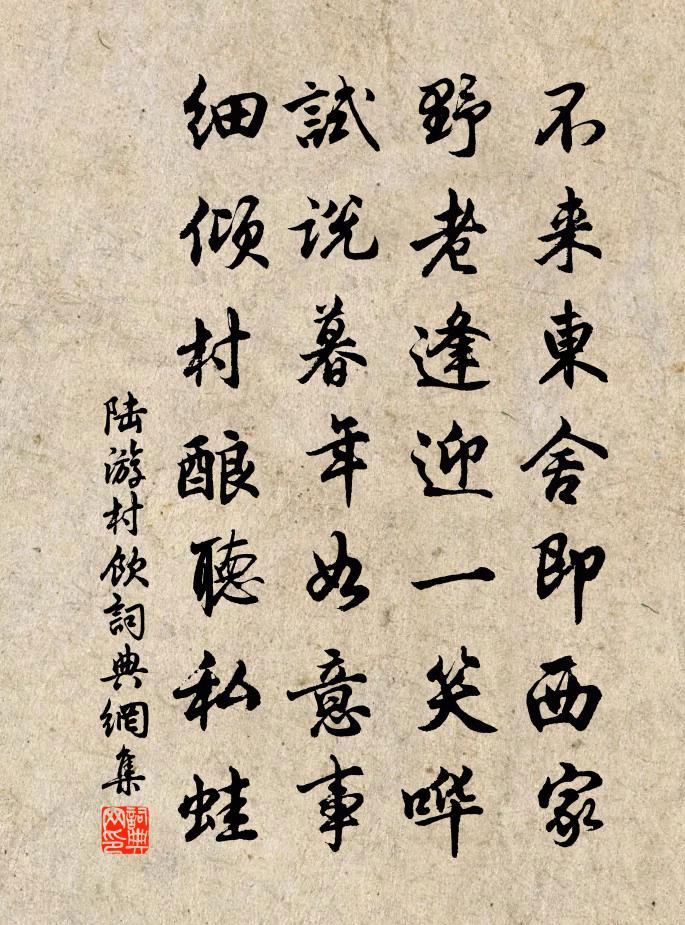 不来東舍即西家
野老逢迎一笑哗
試说暮年如意事
细倾村酿聽私蛙
陆游村飲詞典網集
詞典网印